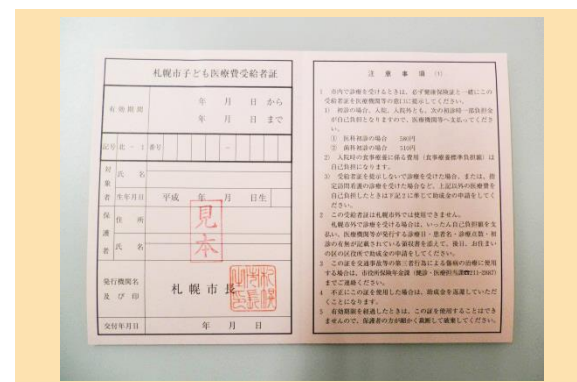 札幌市子ども医療費受給者証
有効期間
年 月 日 から
年 月 日 まで
記号
番号
対象者
氏 名
生年月日
平成 年 月 日生
保護者
住 所
氏 名
見本
発行機関名
及 び 印
札 幌 市 長
交付年月日
年 月 日
注 意 事 項 (1)
1 市内で診療を受けるときは、必ず健康保険証と一緒にこの
受給者証を医療機関等の窓口に提示してください。
1) 初診の場合、入院、入院外とも、次の初診時一部負担金
が自己負担となりますので、医療機関等へ支払ってくださ
い。
① 医科初診の場合 580円
② 歯科初診の場合 510円
2) 入院時の食事療養に係る費用(食事療養標準負担額)は
自己負担になります。
3) 受給者証を提示しないで診療を受けた場合、または、指
定訪問看護の診療を受けた場合など、上記以外の医療費を
自己負担したときは下記2に準じて助成金の申請をしてくだ
さい。
2 この受給者証は札幌市外では使用できません。
札幌市外で診療を受ける場合は、いったん自己負担額を支
払い、医療機関等が発行する診療日・患者名・診療点数・初
診の有無が記載されている領収書を添えて、後日、お住まい
の区の区役所で助成金の申請をしてください。
3 この証を交通事故等の第三者行為による傷病の治療に使用
する場合は、市役所保険年金課(健診・医療担当課☎211-2887)
までご連絡ください。
4 不正にこの証を使用した場合は、助成金を返還していただ
くことになります。
5 有効期間を経過したときは、この証を使用することはでき
ませんので、保護者の方が細かく裁断して破棄してください。